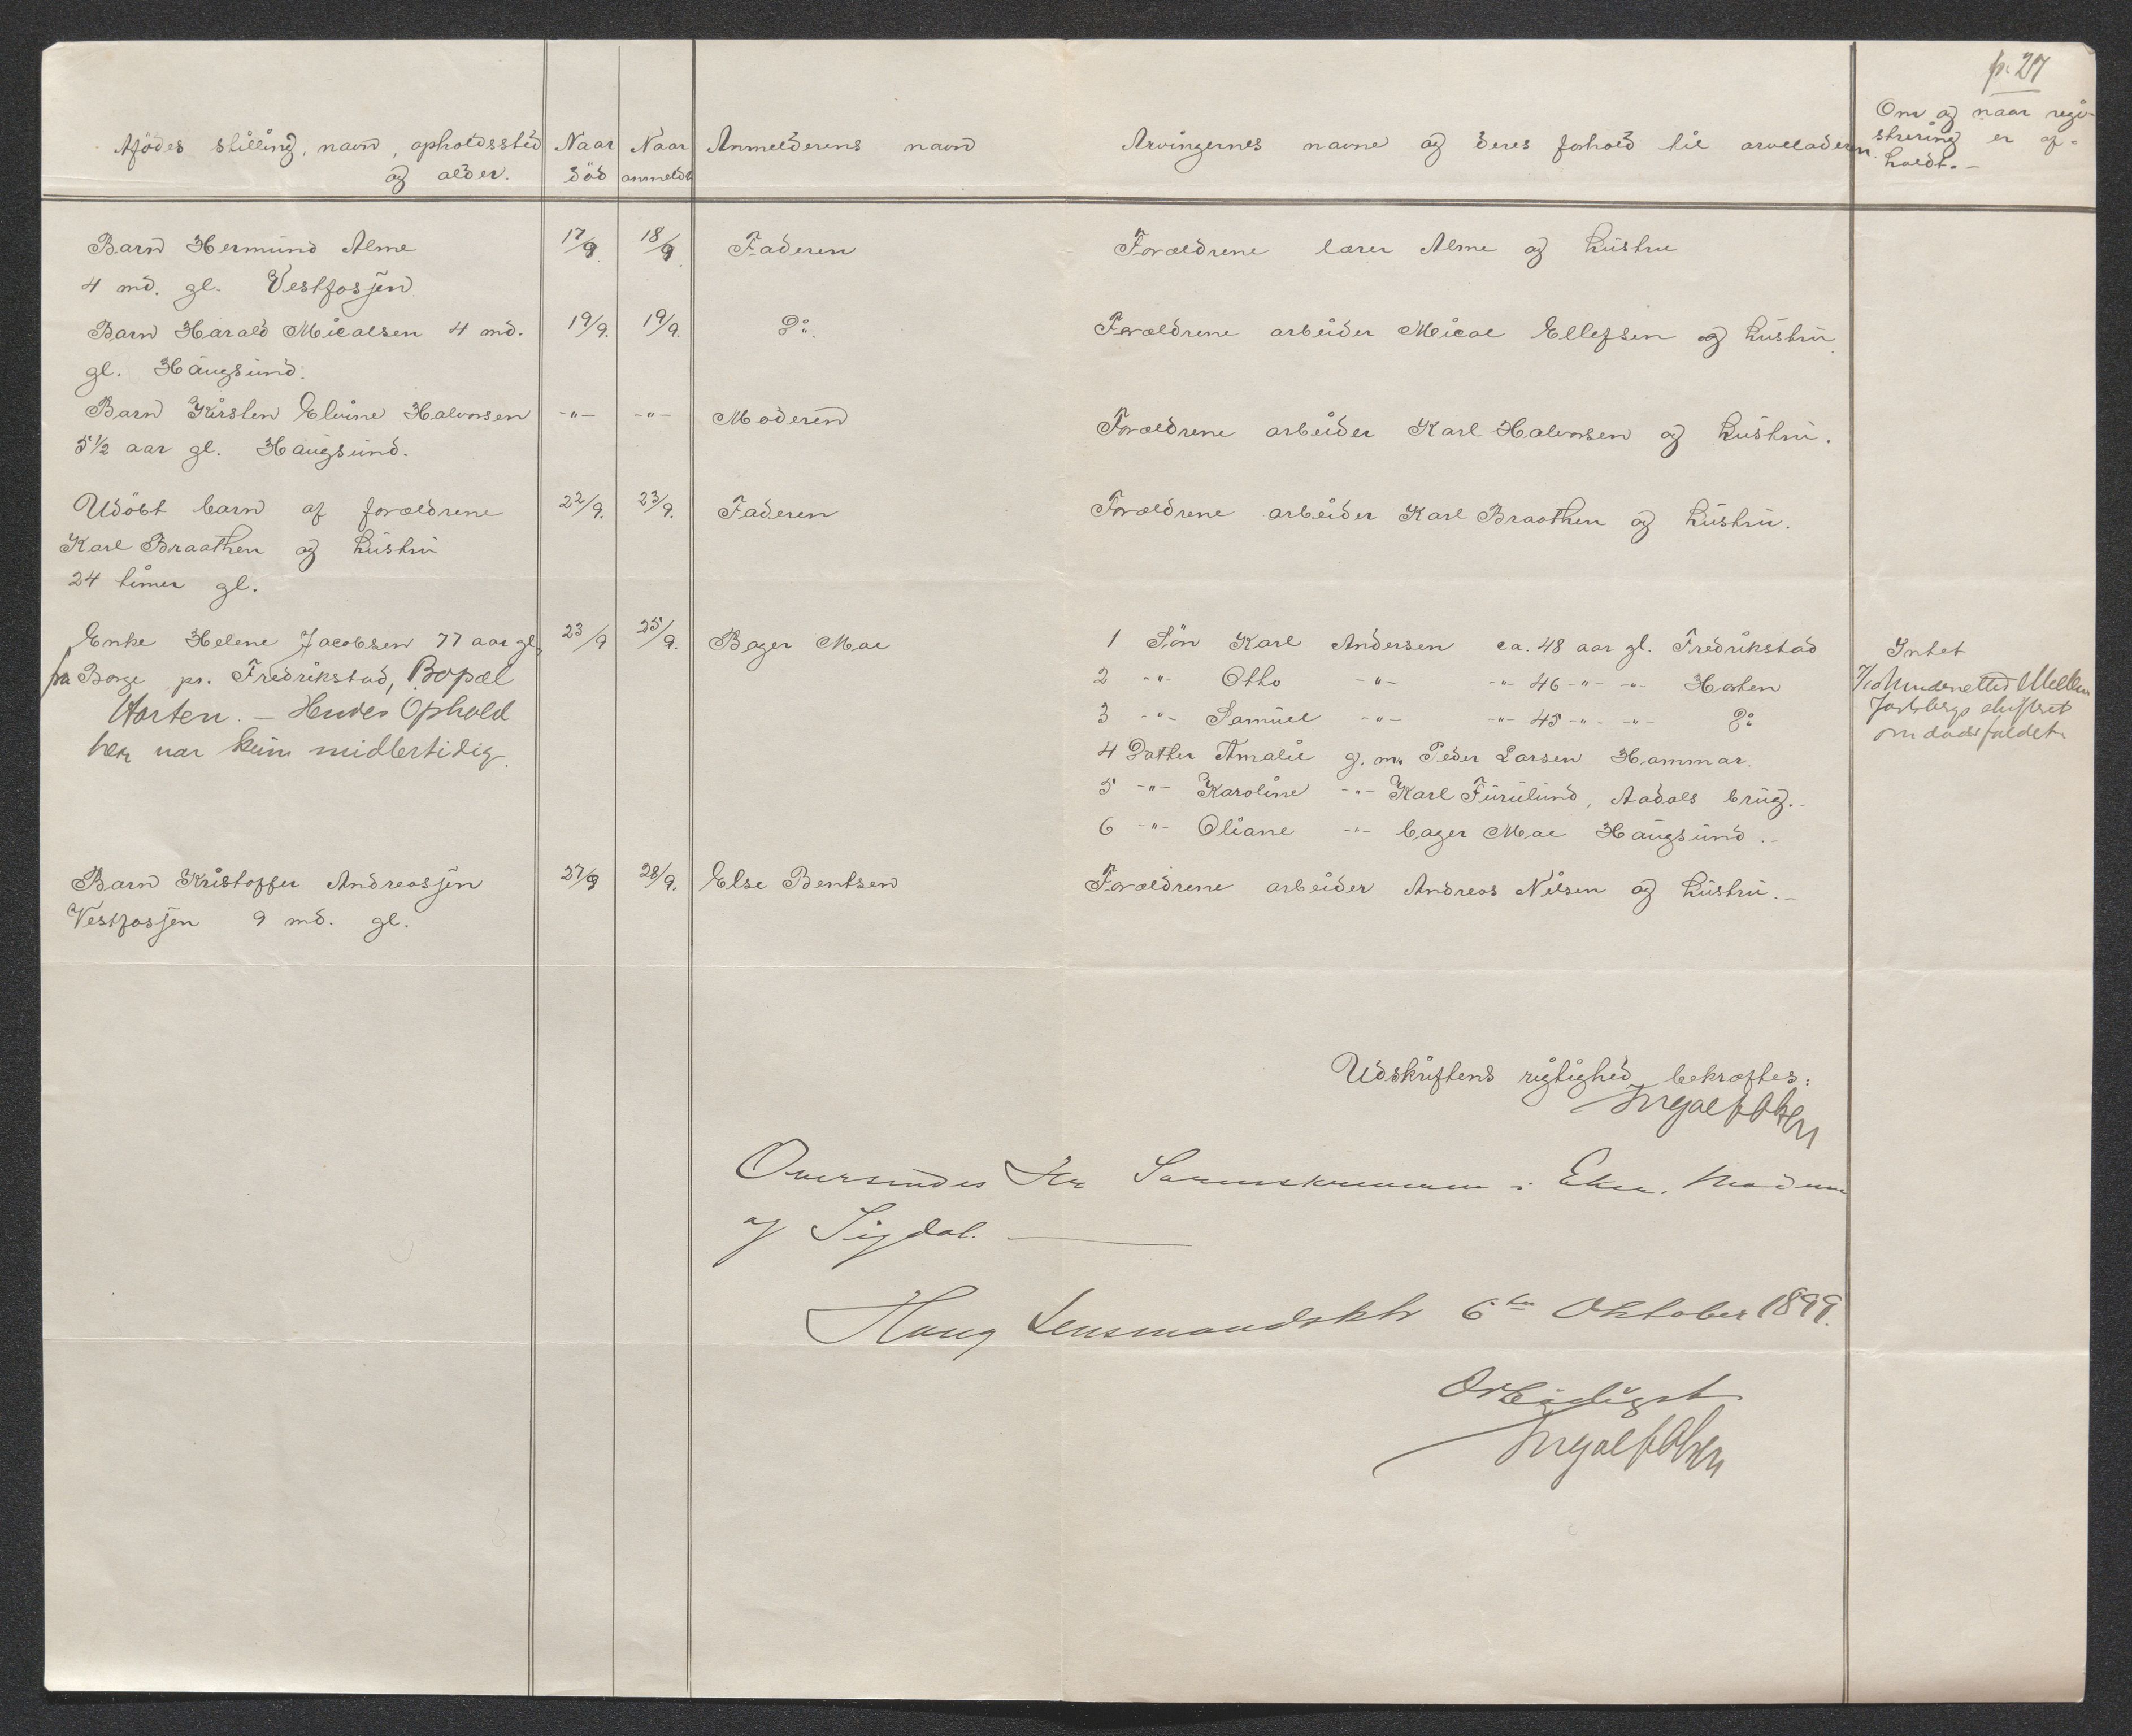 p. 27
Afdödes stilling, navn, opholdssted
og alder.
Naar
död
Naar
anmeldt
Anmelderens navn
Arvingernes navne og deres forhold til arveladeren.
Om og naar regi-
strering er af-
holdt.-
Barn Hermund Alme
4 md. gl. Vestfossen
17/9.
18/9.
Faderen
Forældrene lærer Alme og hustru
Barn Harald Micalsen 4 md.
gl. Haugsund.
19/9.
19/9.
Do.
Forældrene arbeider Mical Ellefsen og hustru.
Barn Kirsten Elvine Halvorsen
5 1/2 aar gl. Haugsund.
-"-
-"-
Moderen
Forældrene arbeider Karl Halvorsen og hustru.
Udöbt barn af forældrene
Karl Braathen og hustru
24 timer gl.
22/9.
23/9.
Faderen
Forældrene arbeider Karl Braathen og hustru.
Enke Helene Jacobsen 77 aar gl,
fra Borge pr. Fredrikstad, Bopæl
Horten. - Hendes Ophold
her var kun midlertidig.
23/9
25/9.
Bager Mae
1 Sön Karl Andersen ca. 48 aar gl. Fredrikstad
2 -"- Otto -"- -"- 46 -"- -"- Horten
3 -"- Samuel -"- -"- 45 -"- -"- Do
4 Datter Amalie g. m. Peder Larsen Hammar.
5 -"- Karoline -"- Karl Furulund, Aadals brug.-
6 -"- Oliane -"- bager Mae Haugsund.-
Intet
7/10 Underretted
om dødsfaldet.
Barn Kristoffer Andreassen
Vestfossen 9 md. gl.
27/9
28/9.
Else Bentsen
Forældrene arbeider Andreas Nilsen og hustru.-
Udskriftens rigtighed bekræftes:
Ingolf Olsen
Oversendes Hr Sorenskriveren i Eker, Modum
og Sigdal.
Haug Lensmandsktr 6te Oktober 1899.
Ærbødigst
Ingolf Olsen